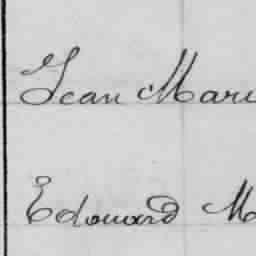 Jean Marie
Edouard M